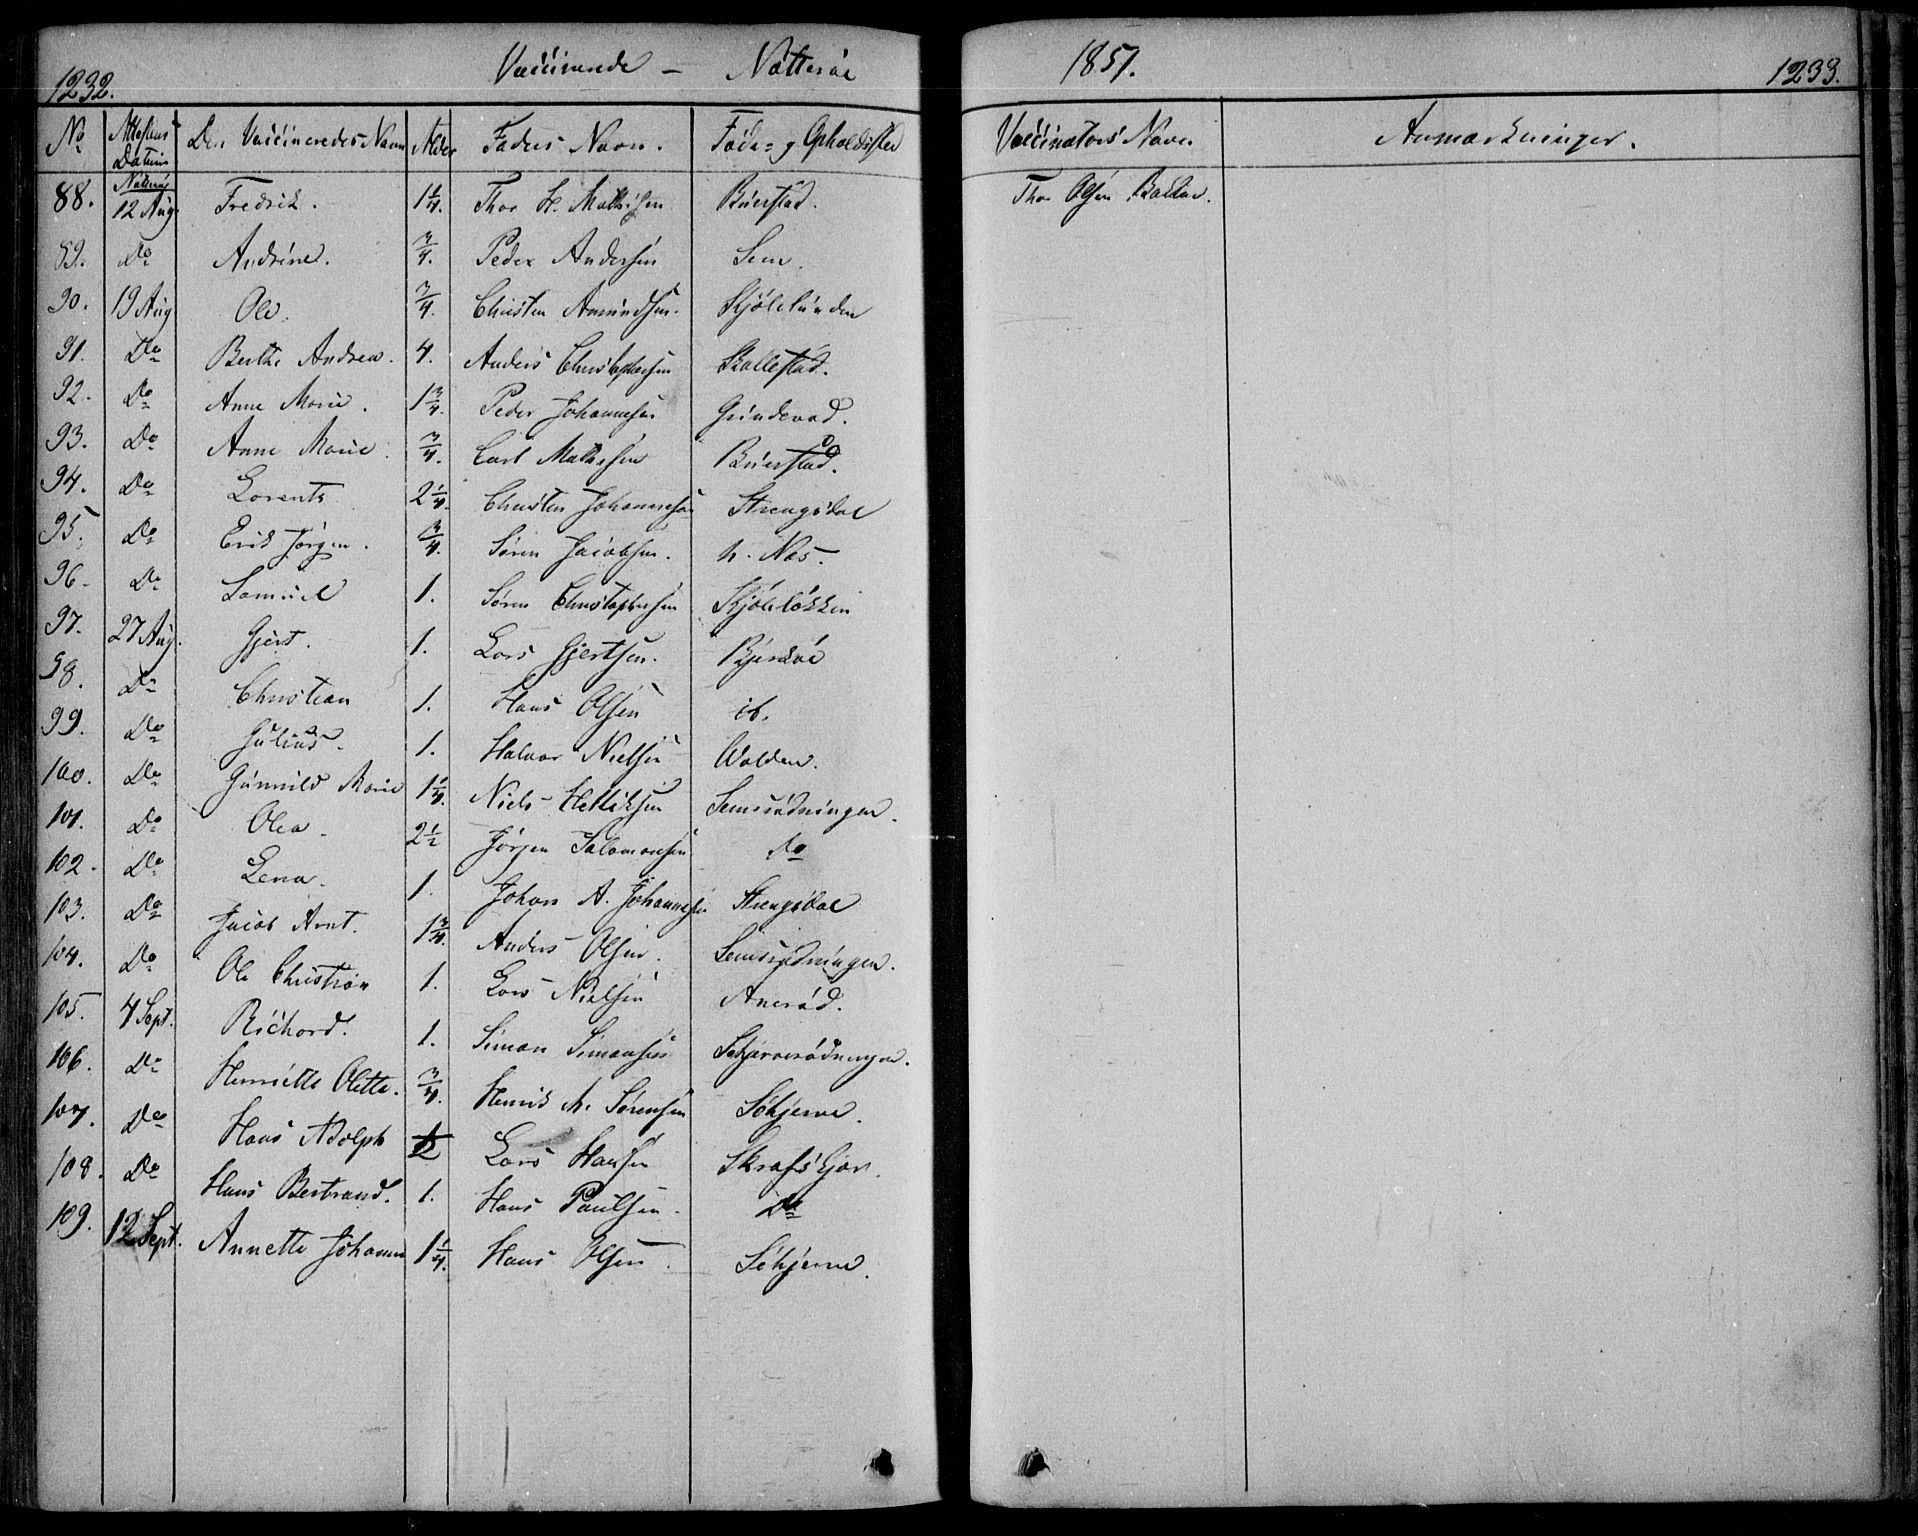 1232. Vaccinerede – Nøtterøe 1851. 1233.
No Attestens Datum Den Vaccineredes Navn Alder Faders Navn. Føde- og Opholdssted Vaccinators Navn Anmærkninger.
88. Nøtterø 12 Aug. Fredrik. 1 1/4. Thor H. Mathisen Buerstad. Thor Olsen
89. Do Andrine. 3/4. Peder Andersen Sem.
90. 19 Aug Ole. 3/4. Christen Amundsen. Kjølelunden
91. Do Berthe Andrea. 4. Anders Christophersen Skallestad.
92. Do Anne Marie. 1 3/4. Peder Johannesen Grindevad.
93. Do Anne Marie. 3/4. Carl Mathisen Buerstad.
94. Do Lorents 2 1/4. Christen Johannesen Strengsdal
95. Do Erik Jørgen. 3/4. Søren Jacobsen. n. Næs.
96. Do Samuel 1. Søren Christophersen Kjøleløkken
97. 27 Aug. Gjert. 1. Lars Gjertsen. Bjerkøe
98. Do Christian 1. Hans Olsen ib.
99. Do Julius. 1. Halvor Nielsen Wolden.
100. Do Gunnild Marie 1 1/4. Niels Henriksen Semsrødningen.
101. Do Olea. 2 1/2 Jørgen Salamonsen Do
102. Do Lena. 1. Johan A. Johannesen Strengsdal
103. Do Jacob Arnt. 1 3/4. Anders Olsen. Semsrødningen.
104. Do Ole Christian 1. Lars Nielsen Anerød.
105. 4 Sept. Richard. 1. Simon Simonsen Schjerverødningen.
106. Do Henriette Olette. 3/4. Henrik M. Sørensen Schjerve.
107. Do Hans Adolph Lars Hansen Skrafskjær.
108. Do Hans Bertrand. 1. Hans Paulsen. Do
109. 12 Sept. Annette Johanne 1 1/4. Hans Olsen. Schjerve.